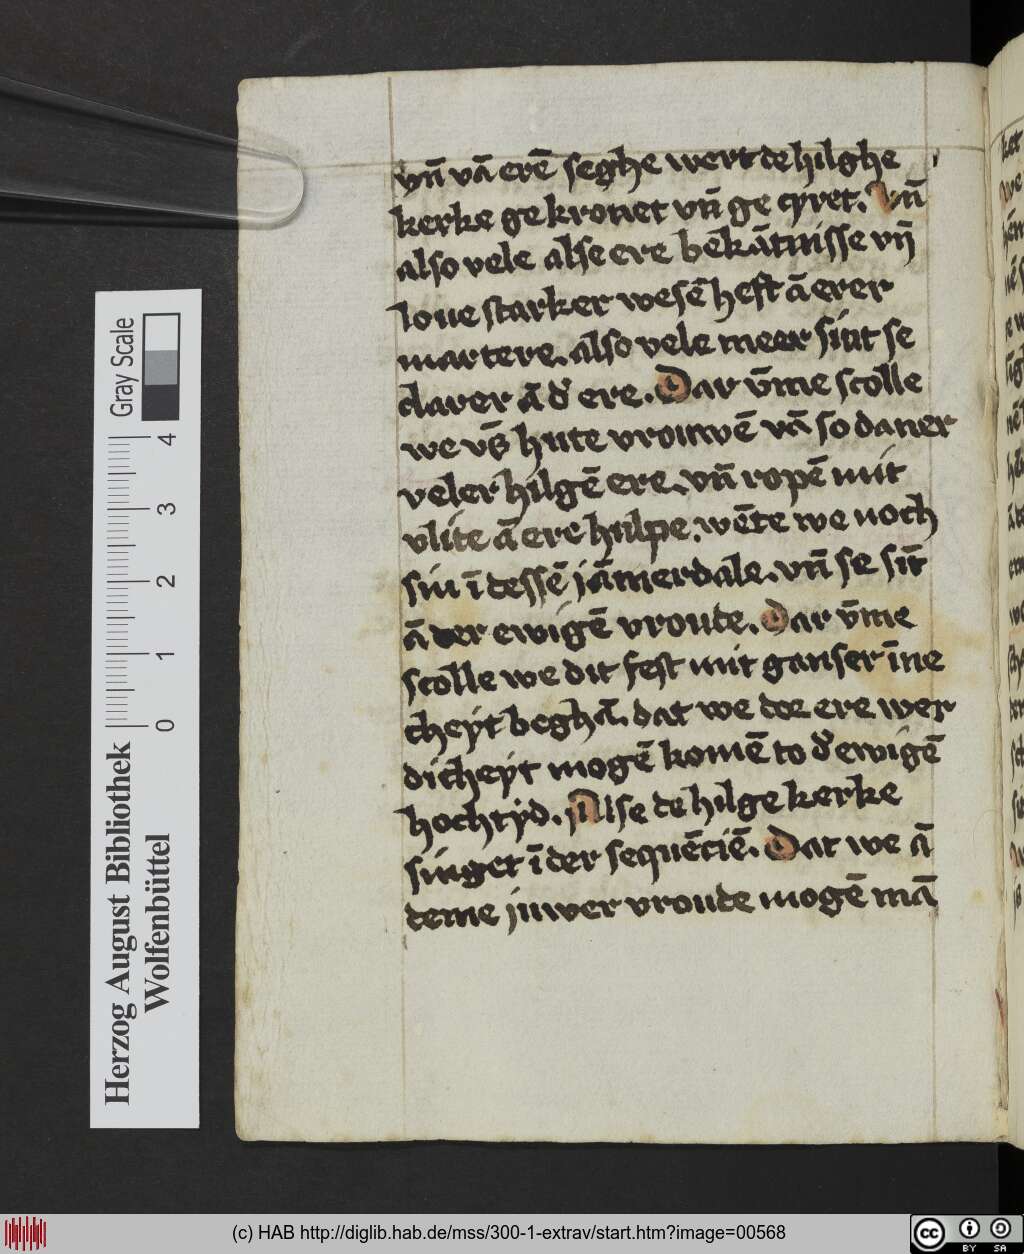 vn̄ vā erē seghe wert de hilghe
kerke ge kronet vn̄ ge cyret. Vn̄
also vele alse ere bekātnisse vn̄
loue starker wesē heft ā erer
martere. also vele meer sint se
clarer ā d' ere. Dar v̄me scolle
we vs hute vrouwē vā so daner
veler hilgē ere. vn̄ ropē mit
vlite ā ere hulpe. wēte we noch
sin ī dessē jāmerdale. vn̄ se sīt
ā der ewigē vroude. Dar v̄me
scolle we dit fest mit ganser īne
cheyt beghā. dat we doe ere wer
dicheyt mogē komē to d' ewigē
hochtyd. Alse de hilge kerke
singet ī der sequēciē. Dat we ā
deme juwer vroude mogē mā
Gray Scale
0 1 2 3 4
Herzog August Bibliothek
Wolfenbüttel
(c) HAB http://diglib.hab.de/mss/300-1-extrav/start.htm?image=00568
cc BY SA